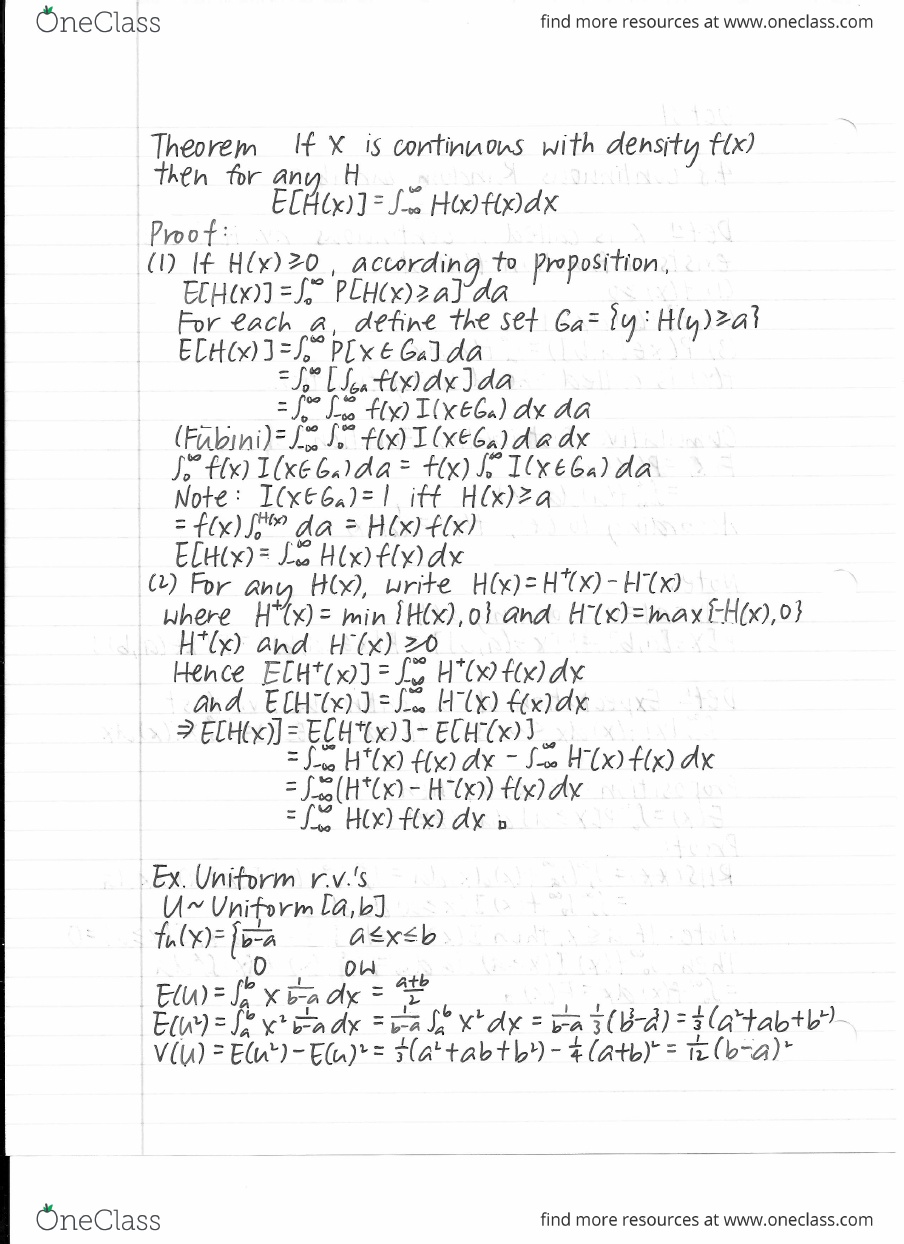 OneClass
find more resources at www.oneclass.com
Theorem If X is continuous with density f(x)
then for any H
E[H(x)] = ∫_-∞^∞ H(x)f(x)dx
Proof:
(1) If H(x)≥0, according to proposition,
E[H(x)] = ∫_0^∞ P[H(x)≥a] da
For each a, define the set Ga = {y : H(y)≥a}
E[H(x)] = ∫_0^∞ P[x∈Ga] da
= ∫_0^∞ [∫_Ga f(x)dx] da
= ∫_0^∞ ∫_-∞^∞ f(x) I(x∈Ga) dx da
(Fubini) = ∫_-∞^∞ ∫_0^∞ f(x) I(x∈Ga) da dx
∫_0^∞ f(x) I(x∈Ga) da = f(x) ∫_0^∞ I(x∈Ga) da
Note: I(x∈Ga) = 1, iff H(x)≥a
= f(x) ∫_0^H(x) da = H(x) f(x)
E[H(x) = ∫_-∞^∞ H(x) f(x) dx
(2) For any H(x), write H(x) = H⁺(x) - H⁻(x)
where H⁺(x) = min {H(x), 0} and H⁻(x) = max{-H(x), 0}
H⁺(x) and H⁻(x) ≥0
Hence E[H⁺(x)] = ∫_-∞^∞ H⁺(x) f(x) dx
and E[H⁻(x)] = ∫_-∞^∞ H⁻(x) f(x) dx
⇒ E[H(x)] = E[H⁺(x)] - E[H⁻(x)]
= ∫_-∞^∞ H⁺(x) f(x) dx - ∫_-∞^∞ H⁻(x) f(x) dx
= ∫_-∞^∞ (H⁺(x) - H⁻(x)) f(x) dx
= ∫_-∞^∞ H(x) f(x) dx □
Ex. Uniform r.v.'s
U ~ Uniform [a,b]
fu(x) = { 1/(b-a) a≤x≤b
0 ow
E(U) = ∫_a^b x 1/(b-a) dx = (a+b)/2
E(U²) = ∫_a^b x² 1/(b-a) dx = 1/(b-a) ∫_a^b x² dx = 1/(b-a) 1/3 (b³-a³) = 1/3 (a²+ab+b²)
V(U) = E(U²) - E(u)² = 1/3 (a²+ab+b²) - 1/4 (a+b)² = 1/12 (b-a)²
OneClass
find more resources at www.oneclass.com